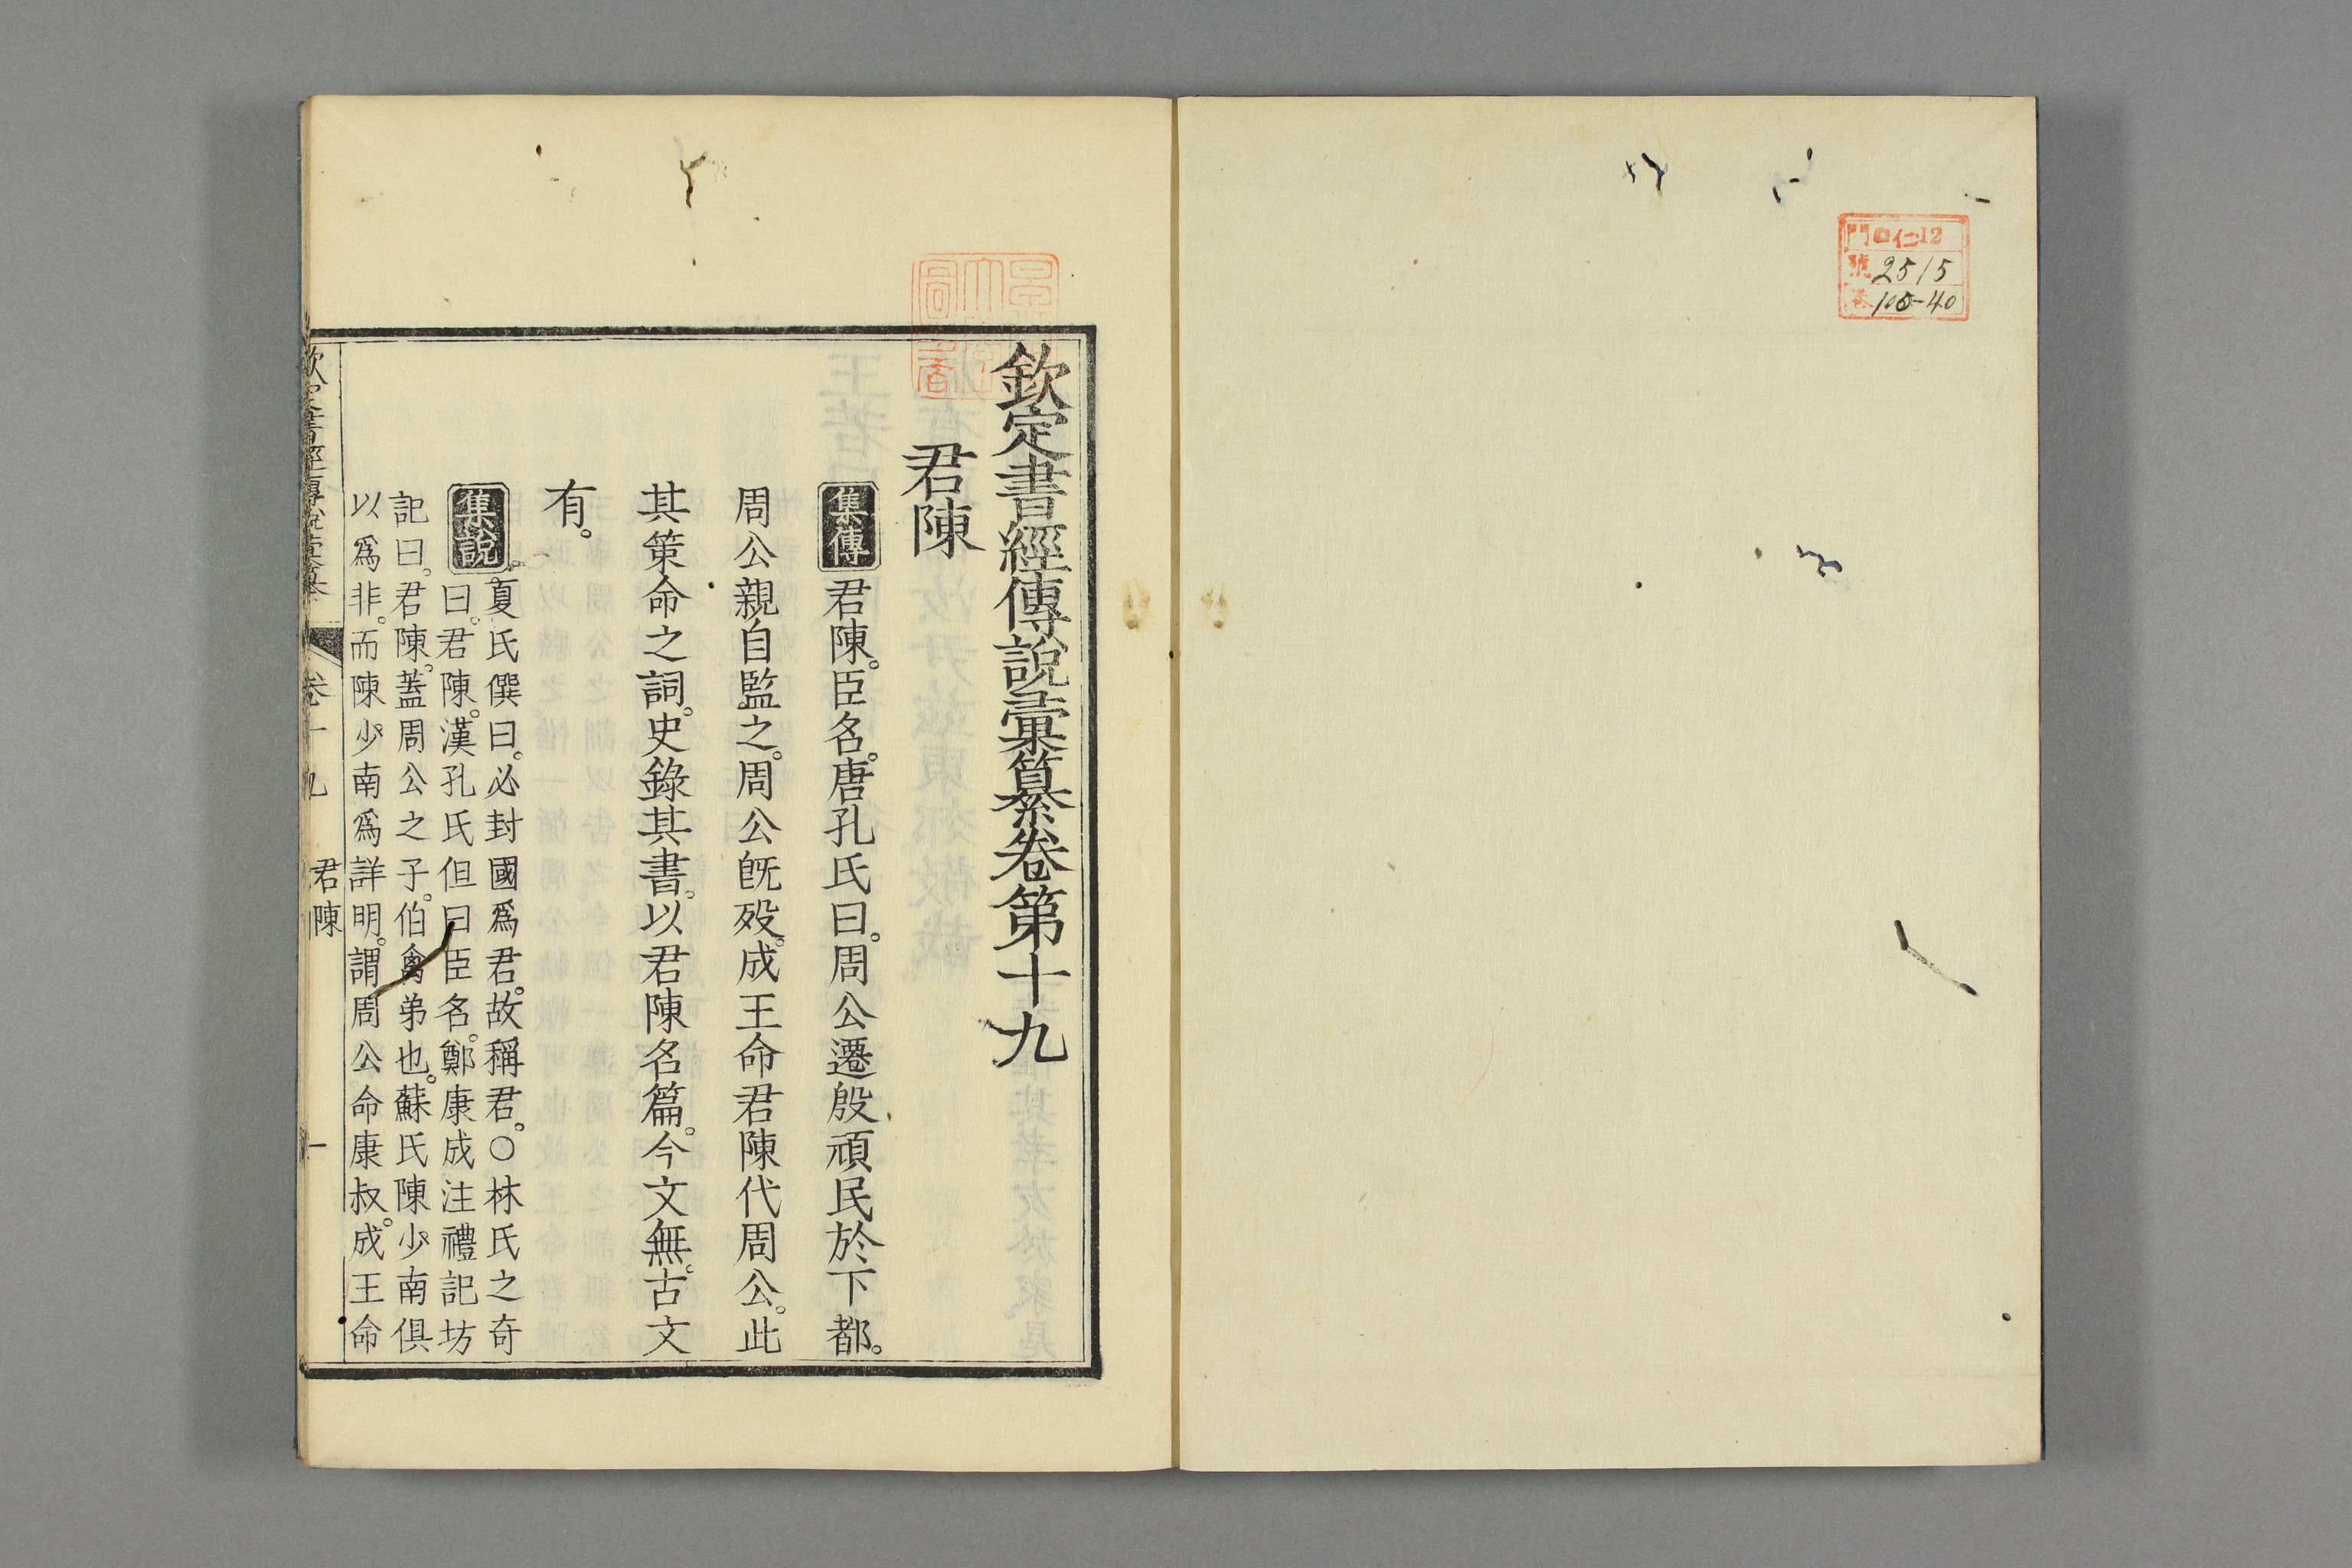 門 口仁12
號 2515
卷 105-40
欽定書經傳說彙纂卷第十九
君陳
集傳 君陳。臣名。唐孔氏曰。周公遷殷頑民於下都。
周公親自監之。周公旣歿。成王命君陳代周公。此
其策命之詞。史錄其書。以君陳名篇。今文無。古文
有。
集說 夏氏僎曰。必封國爲君。故稱君。○林氏之奇
曰。君陳。漢孔氏但曰臣名。鄭康成注禮記坊
記曰。君陳。蓋周公之子。伯禽弟也。蘇氏陳少南俱
以爲非。而陳少南爲詳明。謂周公命康叔。成王命
欽定書經傳說彙纂 卷十九 君陳 一